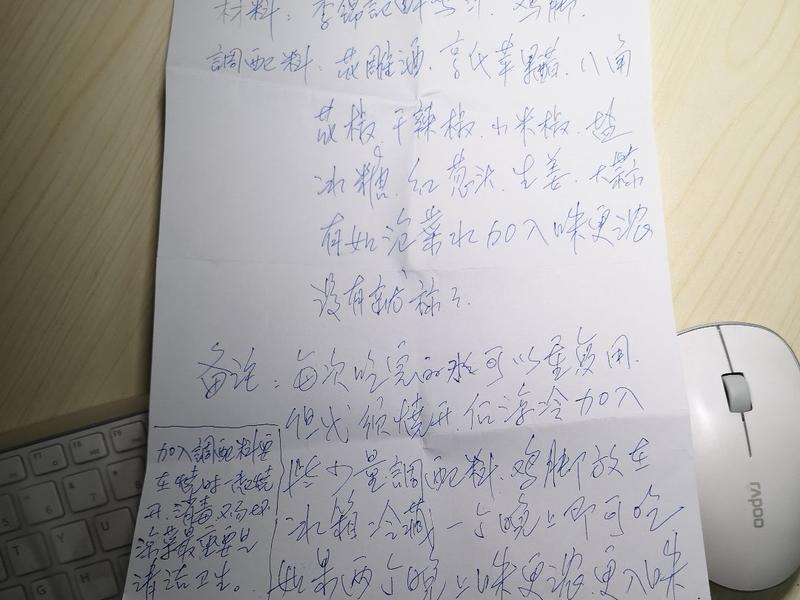 材料：李錦記鮮鸡汁．鸡脚．
調配料：花雕酒．亨氏苹果醋．八角
花椒．干辣椒．小米椒．盐
冰糖．红葱头．生姜．大蒜
有如泡菜水加入味更浓
没有就标了．
备注：每次吃完的水可以重复用．
但必须燒开．后凉冷加入
些少量調配料．鸡脚放在
冰箱冷藏一个晚上即可吃
如果两个晚上味更浓更入味
加入調配料要
在燒时一起燒
开．消毒
泡菜最重要是
清洁卫生。
rapoo